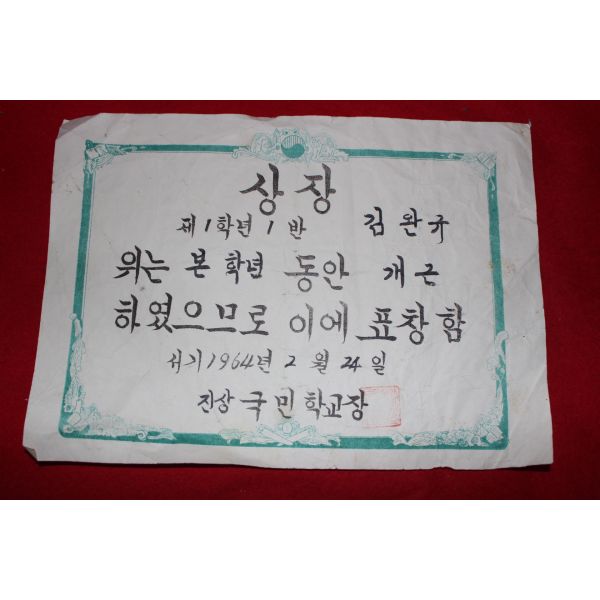 상장
제1학년 1반 김완규
위는 본 학년 동안 개근
하였으므로 이에 표창함
서기1964년 2월 24일
진상 국민학교장